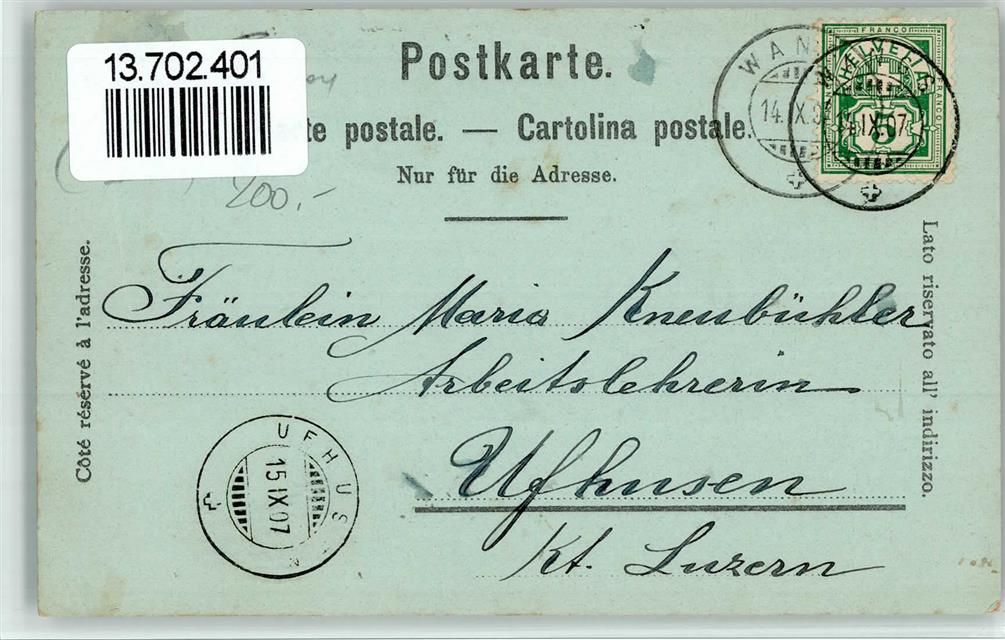 13.702.401
Postkarte.
te postale. — Cartolina postale.
Nur für die Adresse.
200.-
Côté réservé à l'adresse.
Lato riservato all' indirizzo.
FRANCO
HELVETIA
FRANCO
5
WAN
14. IX. 07
IX 07
Fräulein Maria Kneubühler
Arbeitslehrerin
Ufhusen
Kt. Luzern
UFHUS
15 IX 07